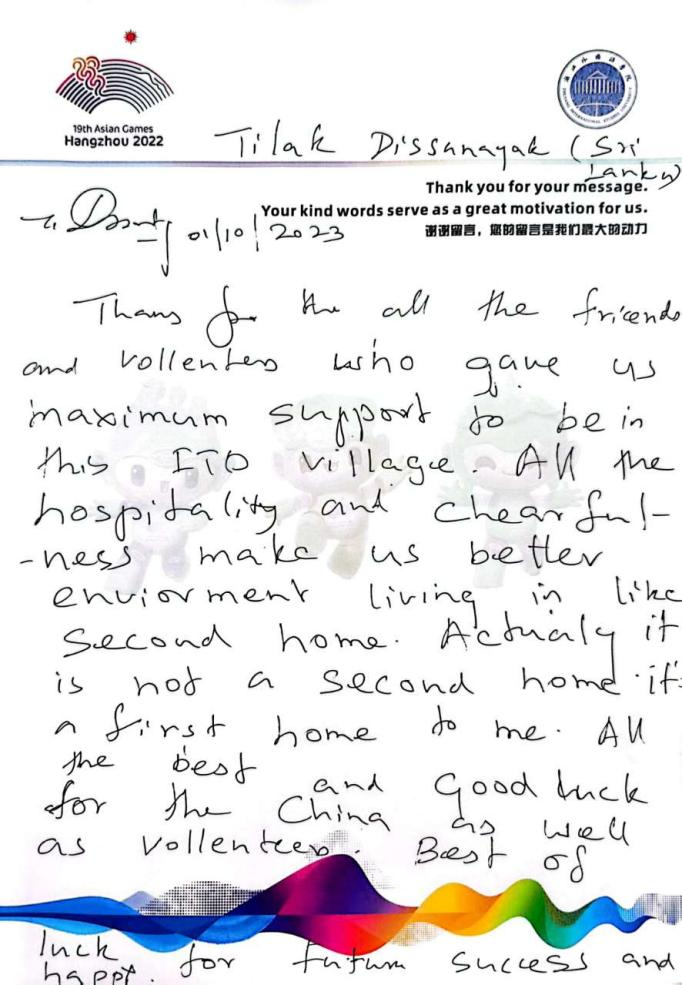 19th Asian Games
Hangzhou 2022
Tilak Dissanayak (Sri
Lanka)
Thank you for your message.
Your kind words serve as a great motivation for us.
谢谢留言，您的留言是我们最大的动力
01/10/2023
Thans for the all the friends
and vollenters who gave us
maximum support to be in
this ITO village. All the
hospitality and chearful-
-ness make us better
enviorment living in like
second home. Actualy it
is not a second home it's
a first home to me. All
the best and Good luck
for the China as well
as vollenteers. Best of
luck for future success and
happt.